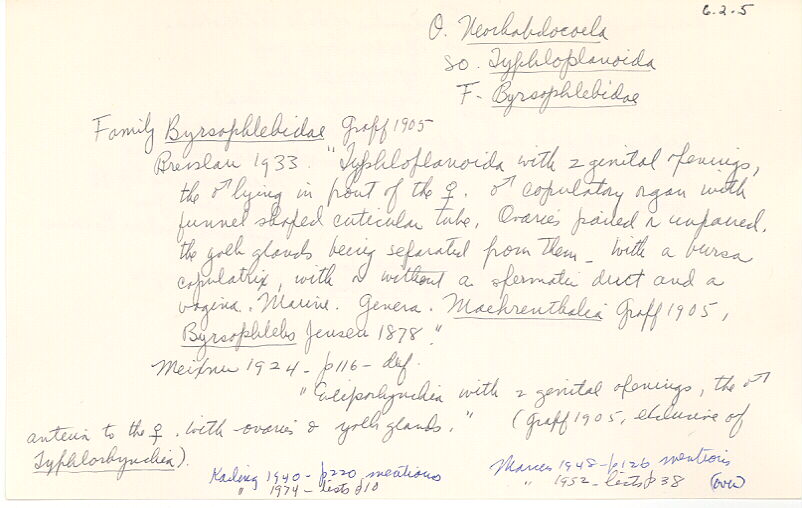 6.2.5
O. Neorhabdocoela
SO. Typhloplanoida
F- Byrsophlebidae
Family Byrsophlebidae Graff 1905
Bresslau 1933. "Typhloplanoida with 2 genital openings,
the ♂ lying in front of the ♀. ♂ copulatory organ with
funnel shaped cuticular tube. Ovaries paired or unpaired,
the yolk glands being separated from them. With a bursa
copulatrix, with or without a spermatic duct and a
vagina. Marine. Genera. Maehrenthalia Graff 1905,
Byrsophlebs Jensen 1878."
Meixner 1924 - p116 - def.
"Euliporhynchia with 2 genital openings, the ♂
anterior to the ♀. With ovaries & yolk glands." (Graff 1905, exclusive of
Typhlorhynchia).
Karling 1940 - p220, mentions
" 1974 - lists p10
Marcus 1948 - p126 mentions
" 1952 - lists p38 (over)